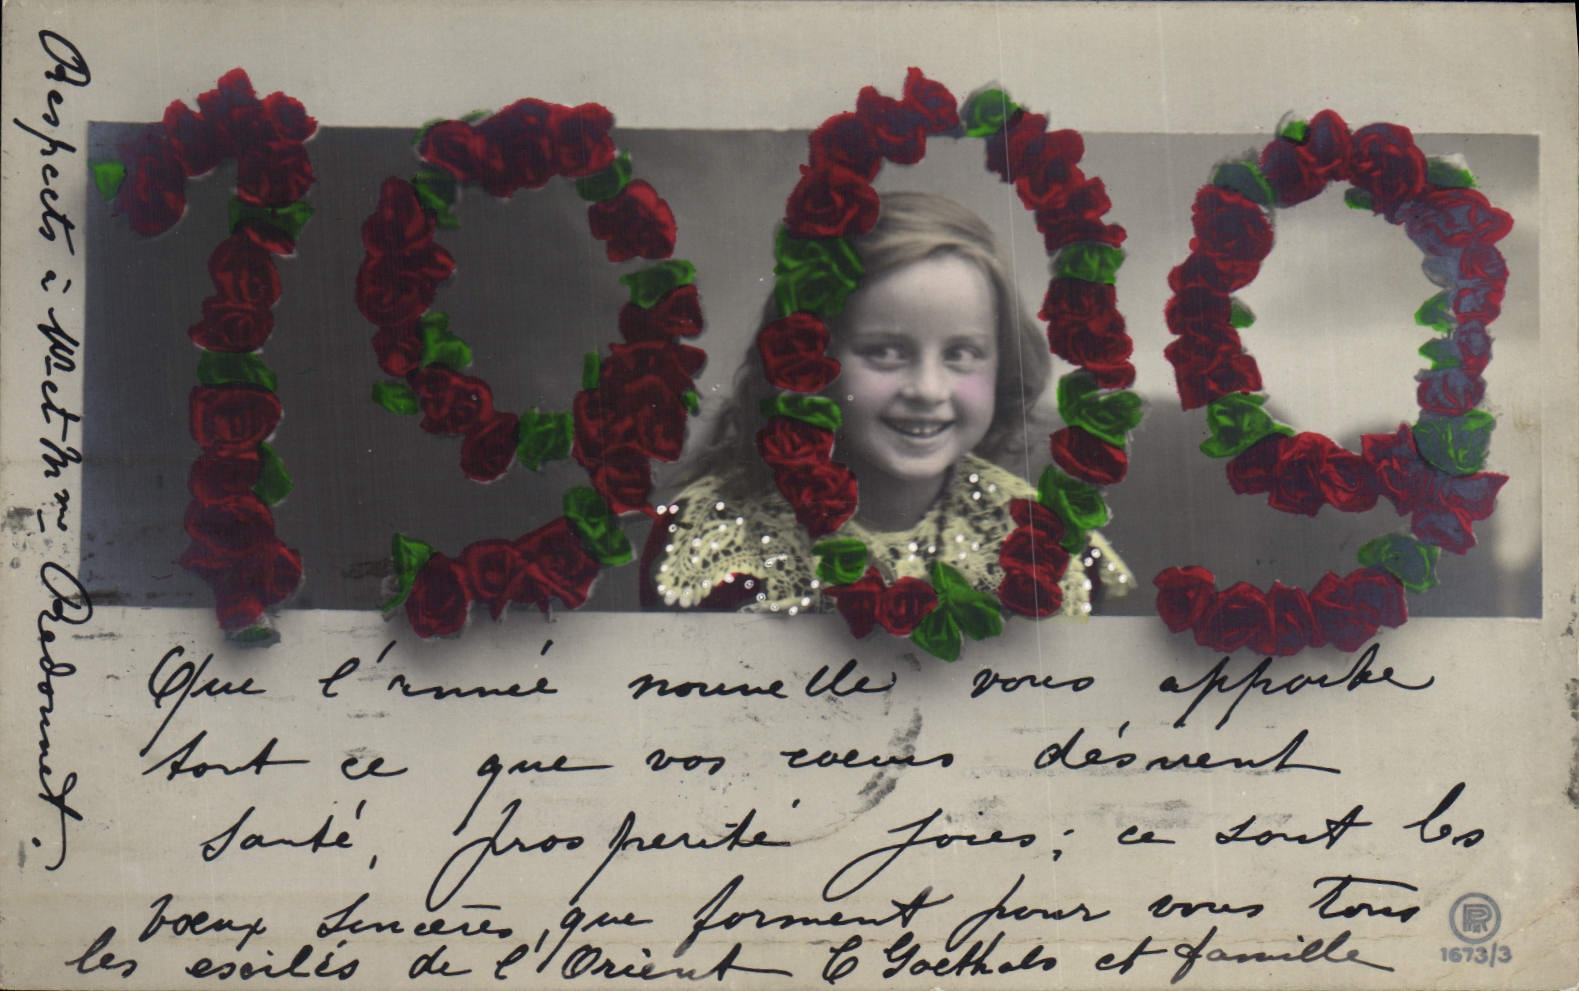 1909
Que l'année nouvelle vous apporte
tout ce que vos coeurs désirent
Santé, prosperité joies; ce sont les
voeux sincères, que forment pour vous tous
les exilés de l'Orient C Goethals et famille
Respects à Mr et Mme Redonnet.
RPH
1673/3